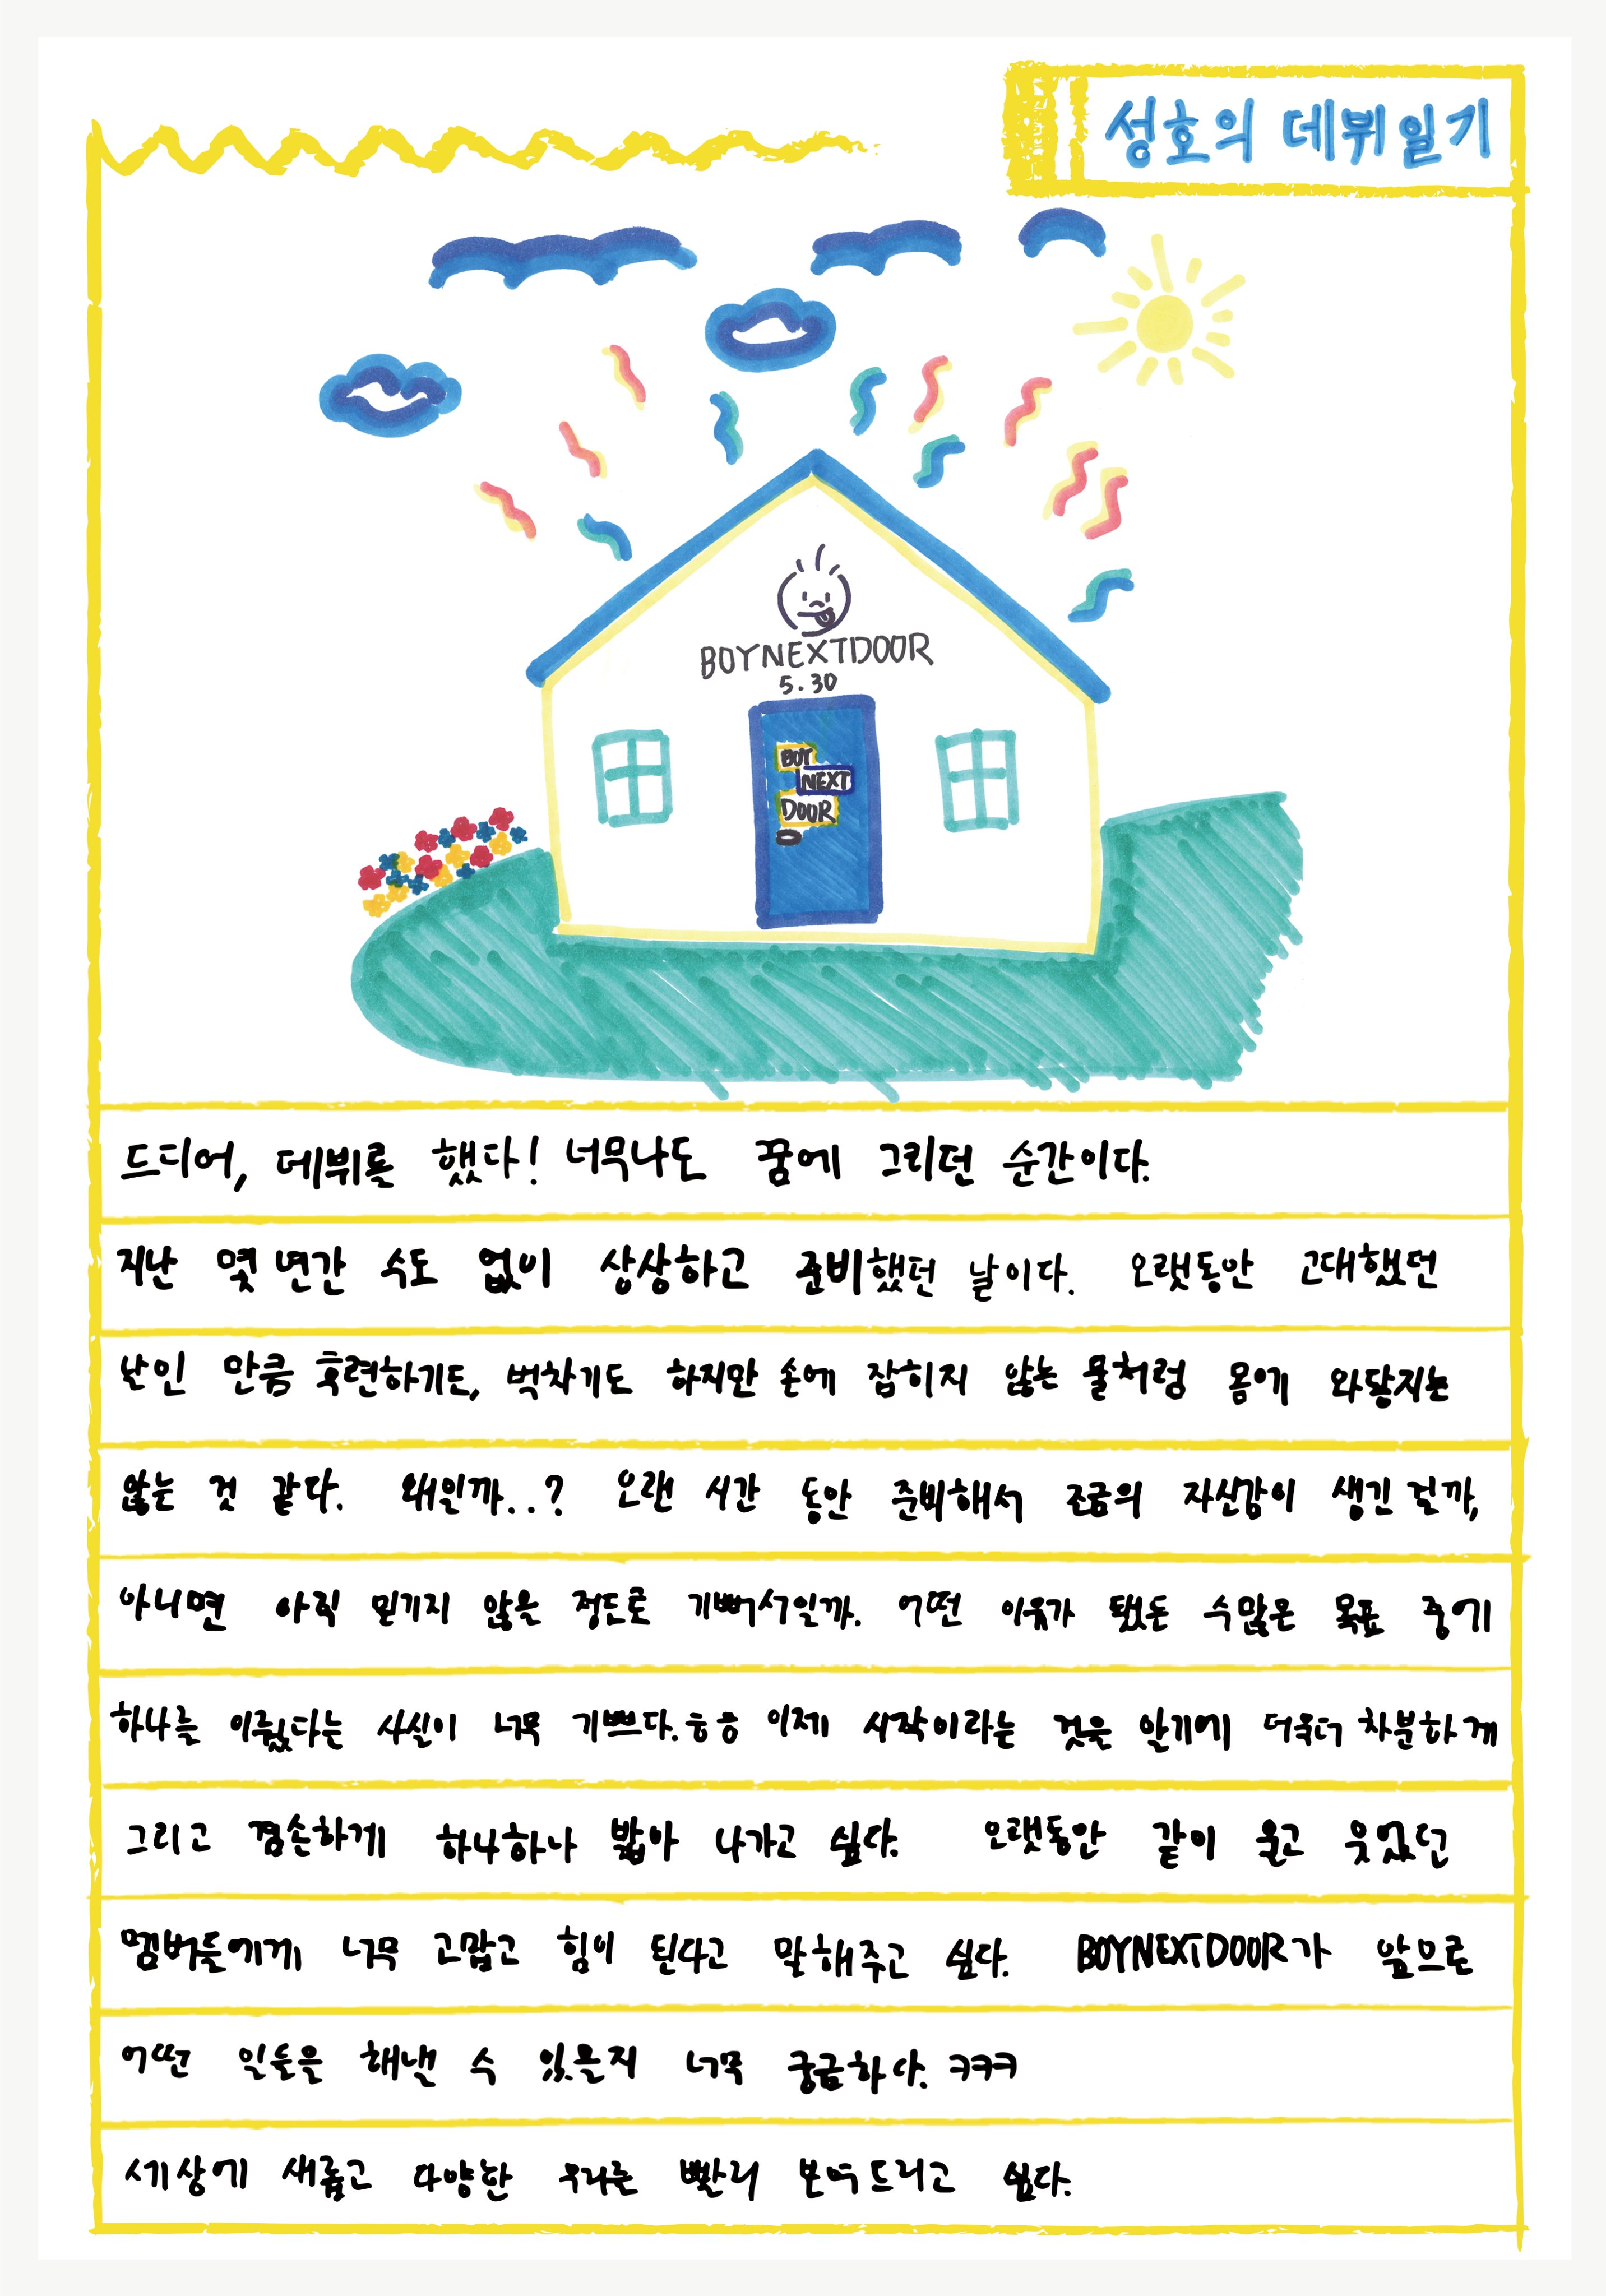 성호의 데뷔일기
BOYNEXTDOOR
5.30
BOY
NEXT
DOOR
드디어, 데뷔를 했다! 너무나도 꿈에 그리던 순간이다.
지난 몇 년간 수도 없이 상상하고 준비했던 날이다. 오랫동안 고대했던
날인 만큼 후련하기도, 벅차기도 하지만 손에 잡히지 않는 물처럼 몸에 와닿지는
않는 것 같다. 왜일까..? 오랜 시간 동안 준비해서 조금의 자신감이 생긴 걸까,
아니면 아직 믿기지 않을 정도로 기뻐서일까. 어떤 이유가 됐든 수많은 목표 중에
하나를 이뤘다는 사실이 너무 기쁘다.ㅎㅎ 이제 시작이라는 것을 알기에 더욱더 차분하게
그리고 겸손하게 하나하나 밟아 나가고 싶다. 오랫동안 같이 울고 웃었던
멤버들에게 너무 고맙고 힘이 된다고 말해주고 싶다. BOYNEXTDOOR가 앞으로
어떤 일들을 해낼 수 있을지 너무 궁금하다. ㅋㅋㅋ
세상에 새롭고 다양한 우리를 빨리 보여드리고 싶다.